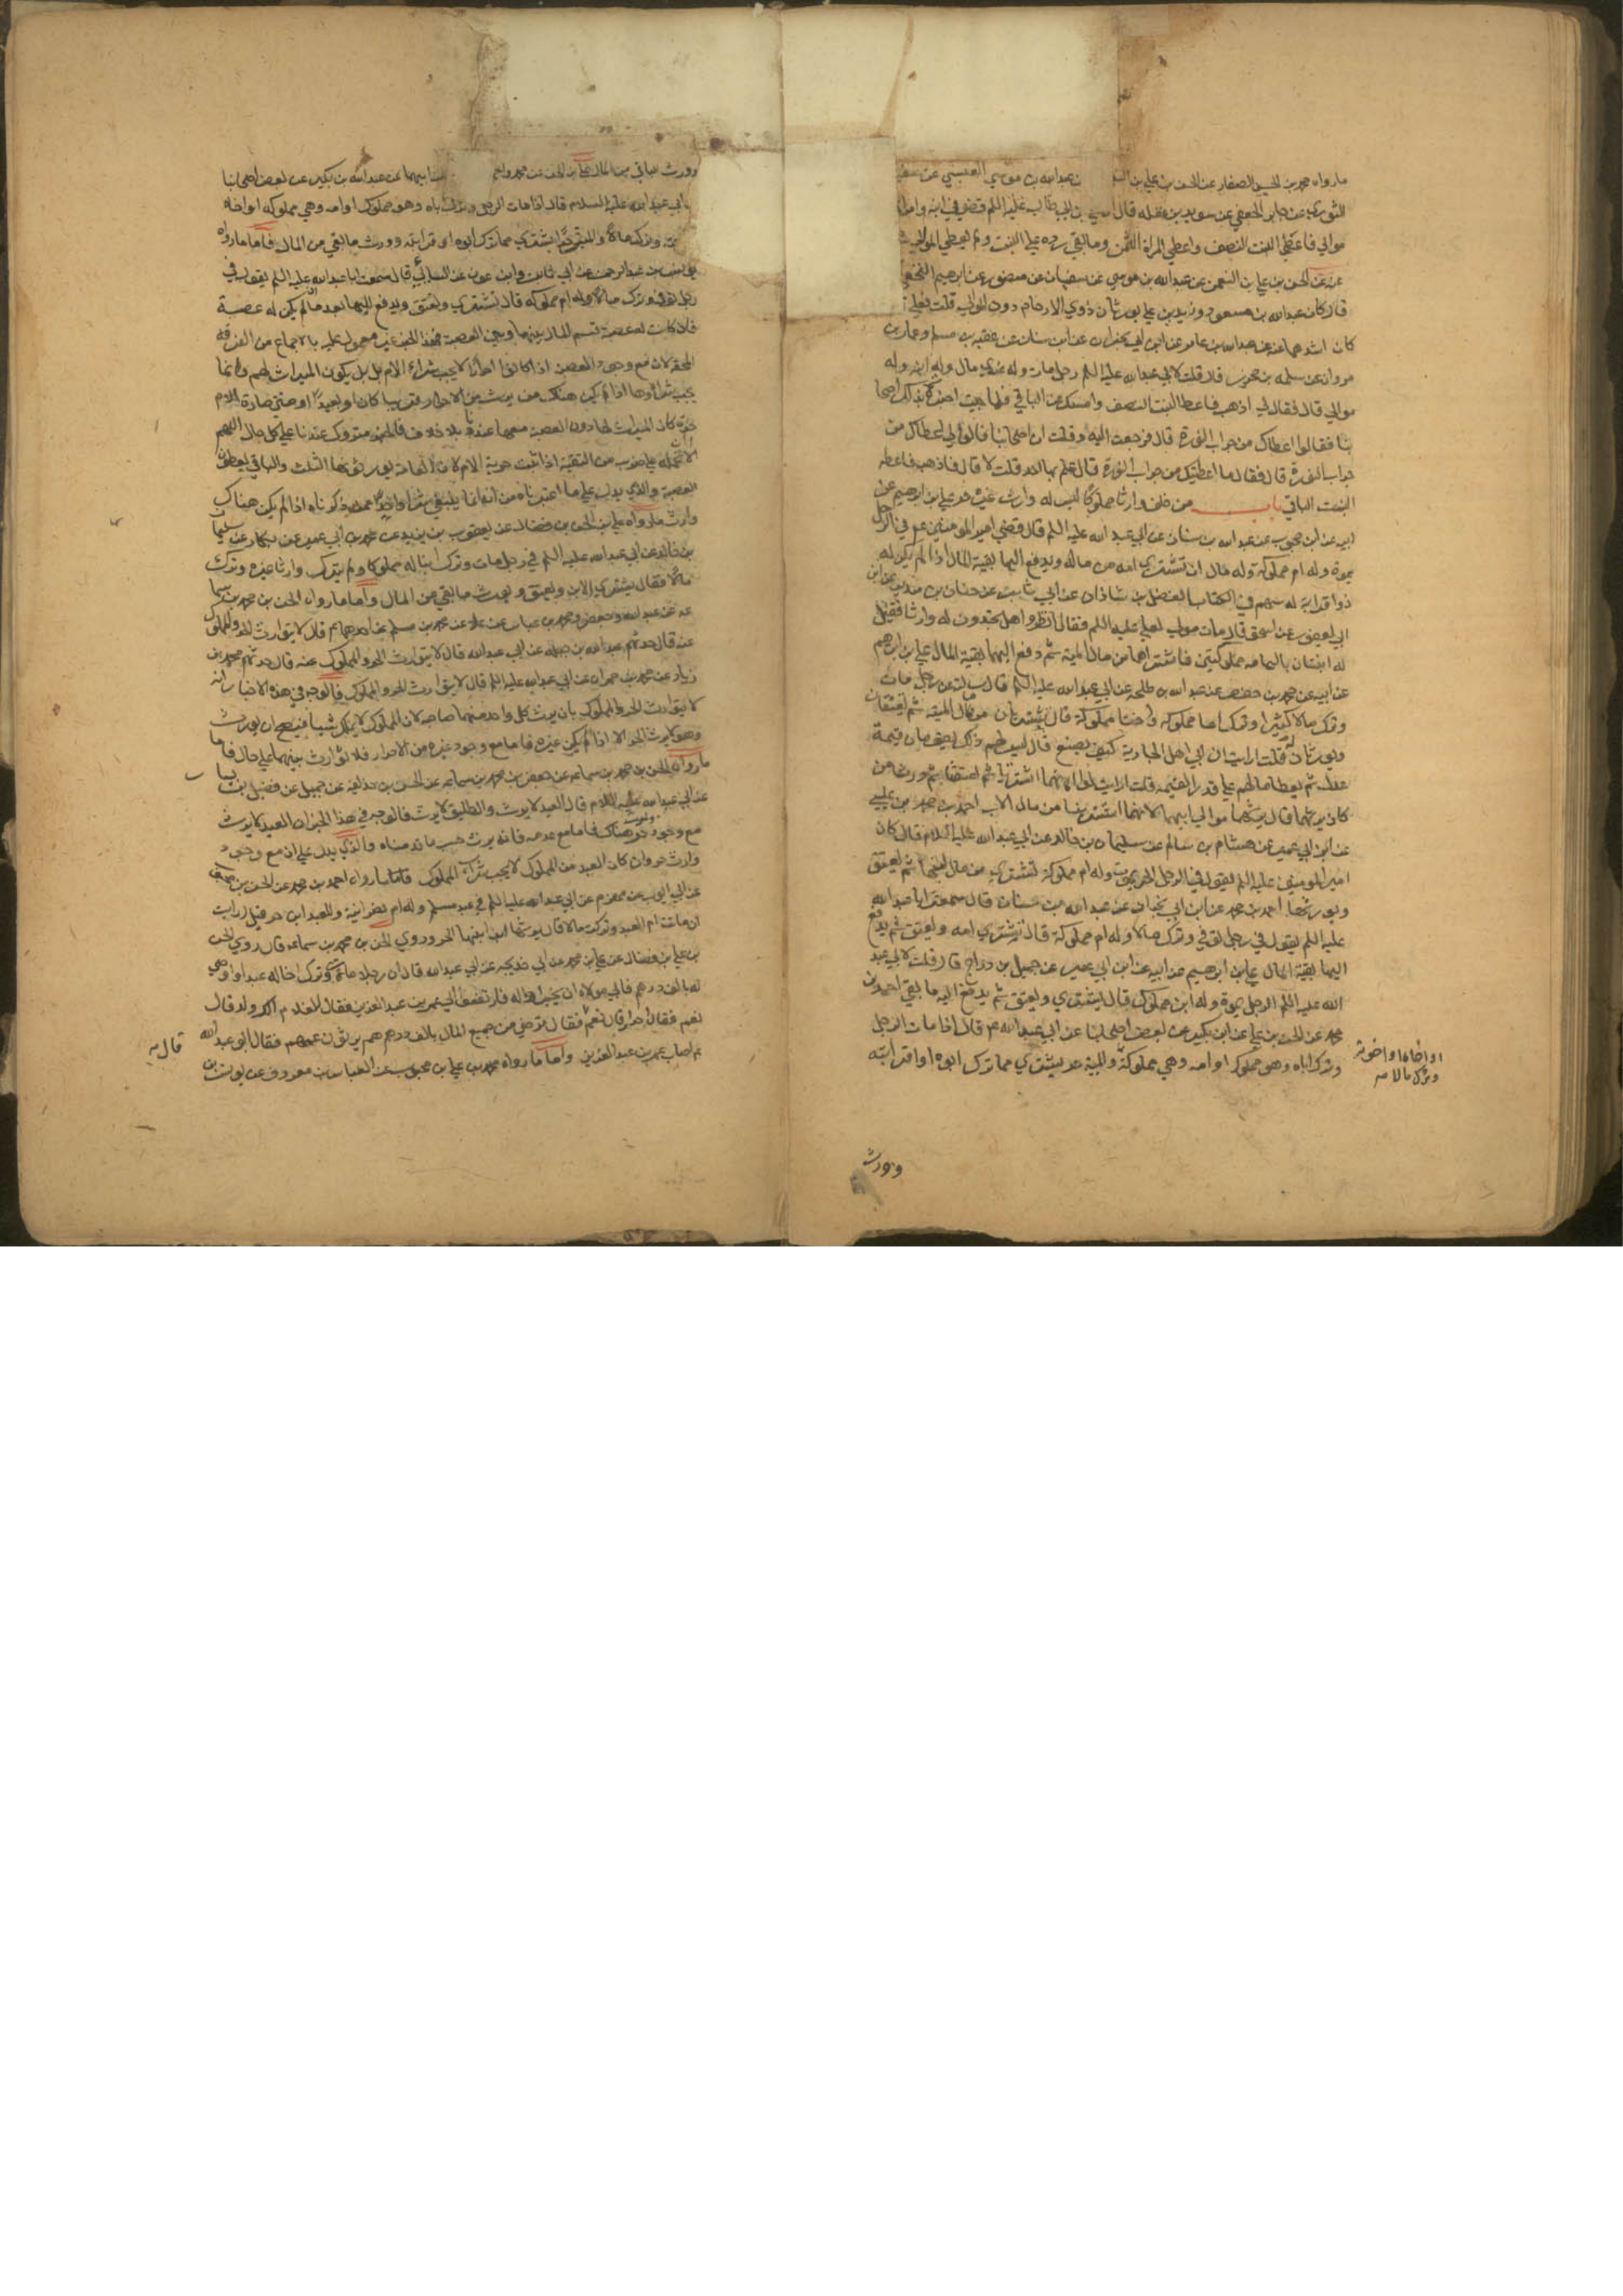 ما رواه محمد بن الحسن الصفار عن الحسن بن علي بن عبد الله بن موسي العبسي عن
الثوري عن جابر الجعفي عن سويد بن غفله قال ان علي بن ابي طالب عليه اللم قضي في ابنه وامراه
موالي فاعطي البنت النصف واعطي المراة الثمن وما بقي رده علي البنت ولم يعطي الموالي
عنه عن الحسن بن علي بن النعمن عن عبد الله بن موسي عن سفيان عن منصور عن ابرهيم النخعي
قال كان عبد الله بن مسعود وزيد بن علي يورثان ذوي الارحام دون الموالي قلت فعلي
كان اشدهما عنه عن عبد الله بن عامر عن ابن ابي نجران عن ابن سنان عن عقبه بن مسلم وعمار بن
مروان عن سلمه بن محرز قال قلت لابي عبد الله عليه اللم رجل مات وله عندي مال وله ابنه وله
موالي قال فقال لي اذهب فاعط البنت النصف وامسك عن الباقي فلما جيت اخبرت بذلك اصحا
بنا فقالوا اعطاك من جراب النورة قال فرجعت اليه وقلت ان اصحابنا قالوا لي اعطاك من
جراب النورة قال فقال ما اعطيتك من جراب النورة قال علم بها احد قلت لا قال فاذهب فاعط
البنت الباقي باب من خلف وارثا مملوكا ليس له وارث غيره علي بن ابرهيم عن
ابيه عن ابن محبوب عن عبد الله بن سنان عن ابي عبد الله عليه اللم قال قضي امير المومنين عم في الرجل
يموت وله ام مملوكة وله مال ان تشتري امه من ماله ويدفع اليها بقية المال اذا لم يكن له
ذوا قرابة له سهم في الكتاب الفضل بن شاذان عن ابي ثابت عن حنان بن سدير عن ابن
ابي يعفور عن اسحق قال مات مولي لعلي عليه اللم فقال انظروا هل تجدون له وارثا فقيل
له ابنتان باليمامه مملوكتين فاشتراهما من مال الميت ثم دفع اليهما بقية المال علي بن ابرهيم
عن ابيه عن محمد بن حفص عن عبد الله بن طلحه عن ابي عبد الله عليه اللم قال سالته عن رجل مات
وترك مالا كثيرا وترك اما مملوكه واختا مملوكة قال تشتريان من مال الميت ثم تعتقان
ويورثان قلت ارايت ان ابي اهل الجارية كيف يصنع قال ليس لهم ذلك يقومان قيمة
عدل ثم يعطا مالهم علي قدر القيمه قلت ارايت لو انهما اشتريا ثم اعتقا ثم ورثا من
كان يرثهما قال يرثهما موالي ابيهما لانهما اشتريا من مال الاب احمد بن محمد بن عيسي
عن ابن ابي عمير عن هشام بن سالم عن سليمان بن خالد عن ابي عبد الله عليه السلام قال كان
امير المومنين عليه اللم يقول في الرجل الحر يموت وله ام مملوكة تشتري من مال ابنها ثم تعتق
ويورثها احمد بن محمد عن ابن ابي نجران عن عبد الله بن سنان قال سمعت ابا عبد الله
عليه اللم يقول في رجل توفي وترك مالا وله ام مملوكة قال تشتري امه وتعتق ثم يدفع
اليها بقية المال علي بن ابرهيم عن ابيه عن ابن ابي عمير عن جميل بن دراج قال قلت لابي عبد
الله عليه اللم الرجل يموت وله ابن مملوك قال يشتري ويعتق ثم يدفع اليه ما بقي احمد بن
محمد عن الحسن بن علي عن ابن بكير عن بعض اصحابنا عن ابي عبد الله عم قال اذا مات الرجل
وترك اباه وهو مملوك او امه وهي مملوكة والميت حر يشتري مما ترك ابوه او قرابته
او اخاه او اخته
وترك مالا صح
وورث
وورث الباقي من المال علي بن الحسن عن محمد واحمد ابنيهما عن عبد الله بن بكير عن بعض اصحابنا
عن ابي عبد الله عليه السلام قال اذا مات الرجل وترك اباه وهو مملوك او امه وهي مملوكه او اخاه
وترك مالا والميت حر اشتري مما ترك ابوه او قرابته وورث ما بقي من المال فاما ما رواه
يونس بن عبد الرحمن عن ابي ثابت وابن عون عن السائي قال سمعت ابا عبد الله عليه اللم يقول في
رجل توفي وترك مالا وله ام مملوكه قال تشتري وتعتق ويدفع اليها بعد ماله ان لم يكن له عصبة
فان كانت له عصبة قسم المال بينها وبين العصبة فهذا الخبر غير معمول عليه بالاجماع من الفرقه
المحقه لان مع وجود العصبة اذا كانوا احرارا لا يجب شراء الام بل يكون الميراث لهم وانما
يجب شراوها اذا لم يكن هناك من يرث من الاحرار قريبا كان او بعيدا ومتي صارت الام
حرة كان الميراث لها دون العصبة معها عندنا بلا خلاف فالخبر متروك عندنا علي كل حال اللهم
الا ان نحمله علي ضرب من التقية اذا ثبت حرية الام لان العامه يورثونها الثلث والباقي يعطون
العصبة والذي يدل علي ما اعتبرناه من انه انما ينبغي شرا واحد ممن ذكرناه اذا لم يكن هناك
وارث ما رواه علي بن الحسن بن فضال عن يعقوب بن يزيد عن محمد بن ابي عمير عن بكار عن سليمان
بن خالد عن ابي عبد الله عليه اللم في رجل مات وترك ابنا له مملوكا ولم يترك وارثا غيره وترك
مالا فقال يشتري الابن ويعتق ويورث ما بقي من المال واما ما رواه الحسن بن محمد بن سما
عه عن عبد الله وجعفر ومحمد بن عباس عن علا عن محمد بن مسلم عن احدهما عم قال لا يتوارث الحر والمملوك
عنه قال حدثهم عبد الله بن جبله عن ابي عبد الله قال لا يتوارث الحر والمملوك عنه قال حدثهم محمد بن
زياد عن محمد بن حمران عن ابي عبد الله عليه اللم قال لا يتوارث الحر والمملوك فالوجه في هذه الاخبار انه
لا يتوارث الحر والمملوك بان يرث كل واحد منهما صاحبه لان المملوك لا يملك شيا فيصح ان يورث
وهو لا يرث الحر الا اذا لم يكن غيره فاما مع وجود غيره من الاحرار فلا توارث بينهما علي حال فاما
ما رواه الحسن بن محمد بن سماعه عن جعفر بن محمد بن سماعه عن الحسن بن حذيفه عن جميل عن فضيل بن يسا
عن ابي عبد الله عليه السلام قال العبد لا يرث والطليق لا يرث فالوجه في هذا الخبر ان العبد لا يرث
مع وجود حر هناك فاما مع عدمه فانه يرث حسب ما قدمناه والذي يدل علي ان مع وجود
وارث حر وان كان ابعد من المملوك لا يجب شرآء المملوك فاما ما رواه احمد بن محمد عن الحسن بن محبوب
عن ابي ايوب عن مهزم عن ابي عبد الله عليه اللم في عبد مسلم وله ام نصرانية وللعبد ابن حر قيل ارايت
ان ماتت ام العبد وتركت مالا قال يرثها ابن ابنها الحر وروي الحسن بن محمد بن سماعه قال روي الحسن
بن علي بن فضال عن علي بن محمد عن ابي خديجه عن ابي عبد الله قال ان رجلا مات وترك اخا له عبدا واوصي
له بالف درهم فابي مولاه ان يجيز له فارتفعوا الي عمر بن عبد العزيز فقال للغلام الك ولد قال
نعم فقال احرار قال نعم فقال ترضي من جميع المال بالف درهم هم يرثون عمهم فقال ابو عبد الله
عم اصاب عمر بن عبد العزيز واما ما رواه محمد بن علي بن محبوب عن العباس بن معروف عن يونس بن
قال